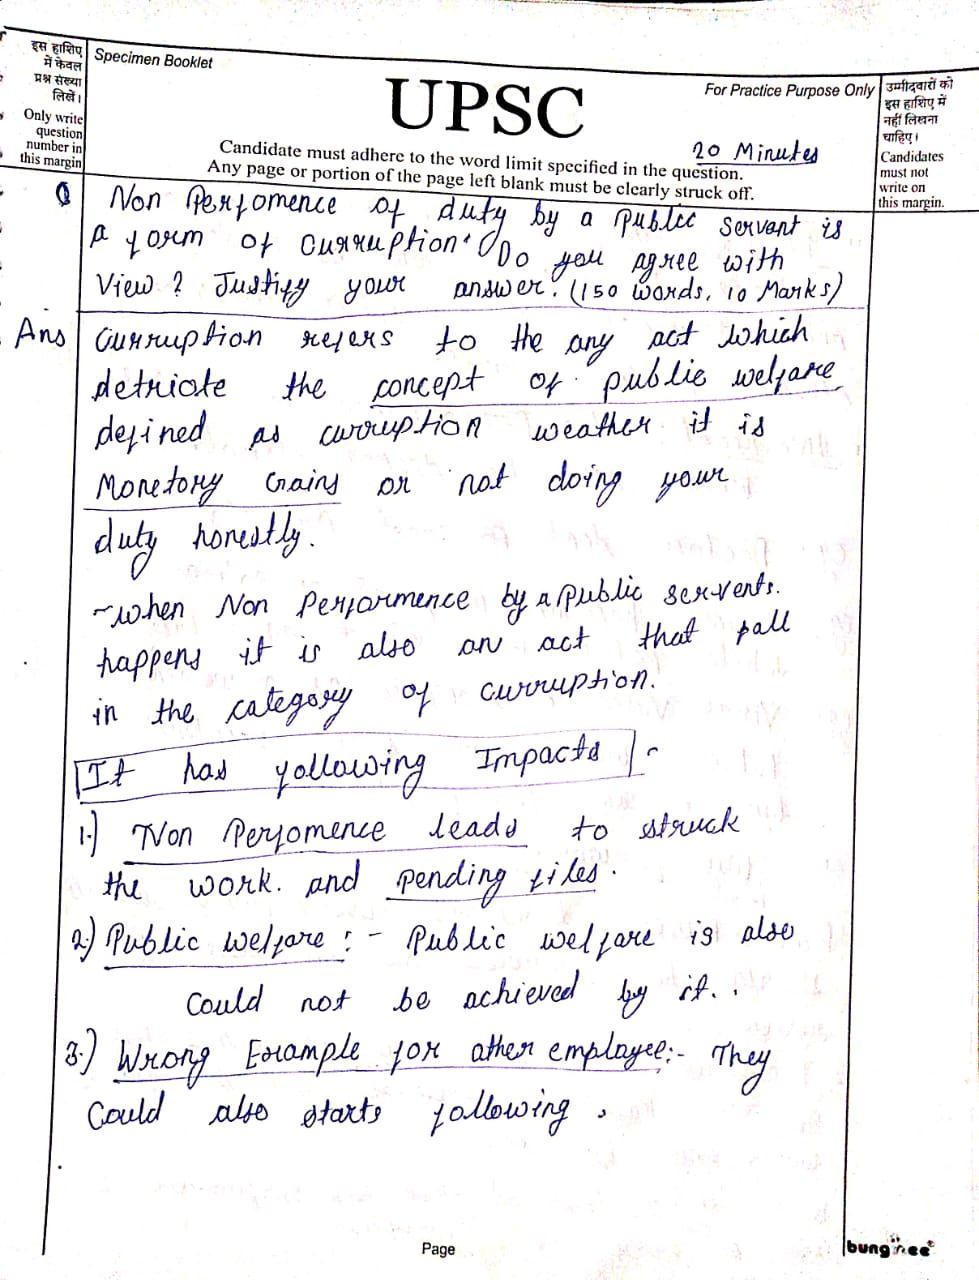 इस हाशिए
में केवल
प्रश्न संख्या
लिखें।
Only write
question
number in
this margin
Specimen Booklet
UPSC
For Practice Purpose Only
20 Minutes
Candidate must adhere to the word limit specified in the question.
Any page or portion of the page left blank must be clearly struck off.
उम्मीदवारों को
इस हाशिए में
नहीं लिखना
चाहिए।
Candidates
must not
write on
this margin.
Q Non Perfomence of duty by a public servant is
a form of curruption. Do you agree with
view? Justify your answer. (150 words, 10 Marks)
Ans Curruption refers to the any act which
detriote the concept of public welfare
defined as curruption weather it is
Monetory Gains or not doing your
duty honestly.
~when Non Performence by a public servents.
happens it is also an act that fall
in the category of curruption.
It has following Impacts :-
1.) Non Perfomence leads to struck
the work. and pending files.
2.) Public welfare :- Public welfare is also
could not be achieved by it..
3.) Wrong Example for other employee:- They
could also starts following.
Page
bungree